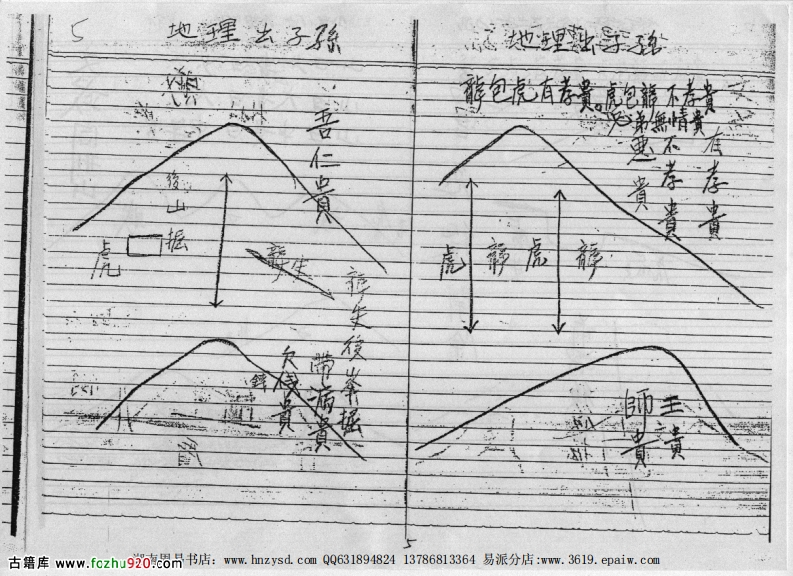 5 地理出子孫
吾仁貴
後山掘
虎
龍失
龍失後峯掘
帶病貴
欠錢貴
地理出子孫
龍包虎有孝貴。虎包龍不孝貴
兄弟無情貴
有孝貴
不孝貴
悪貴
虎 龍 虎 龍
王貴
師貴
5
湖南周易书店: www.hnzysd.com QQ631894824 13786813364 易派分店:www.3619.epaiw.com
古籍库 www.fozhu920.com